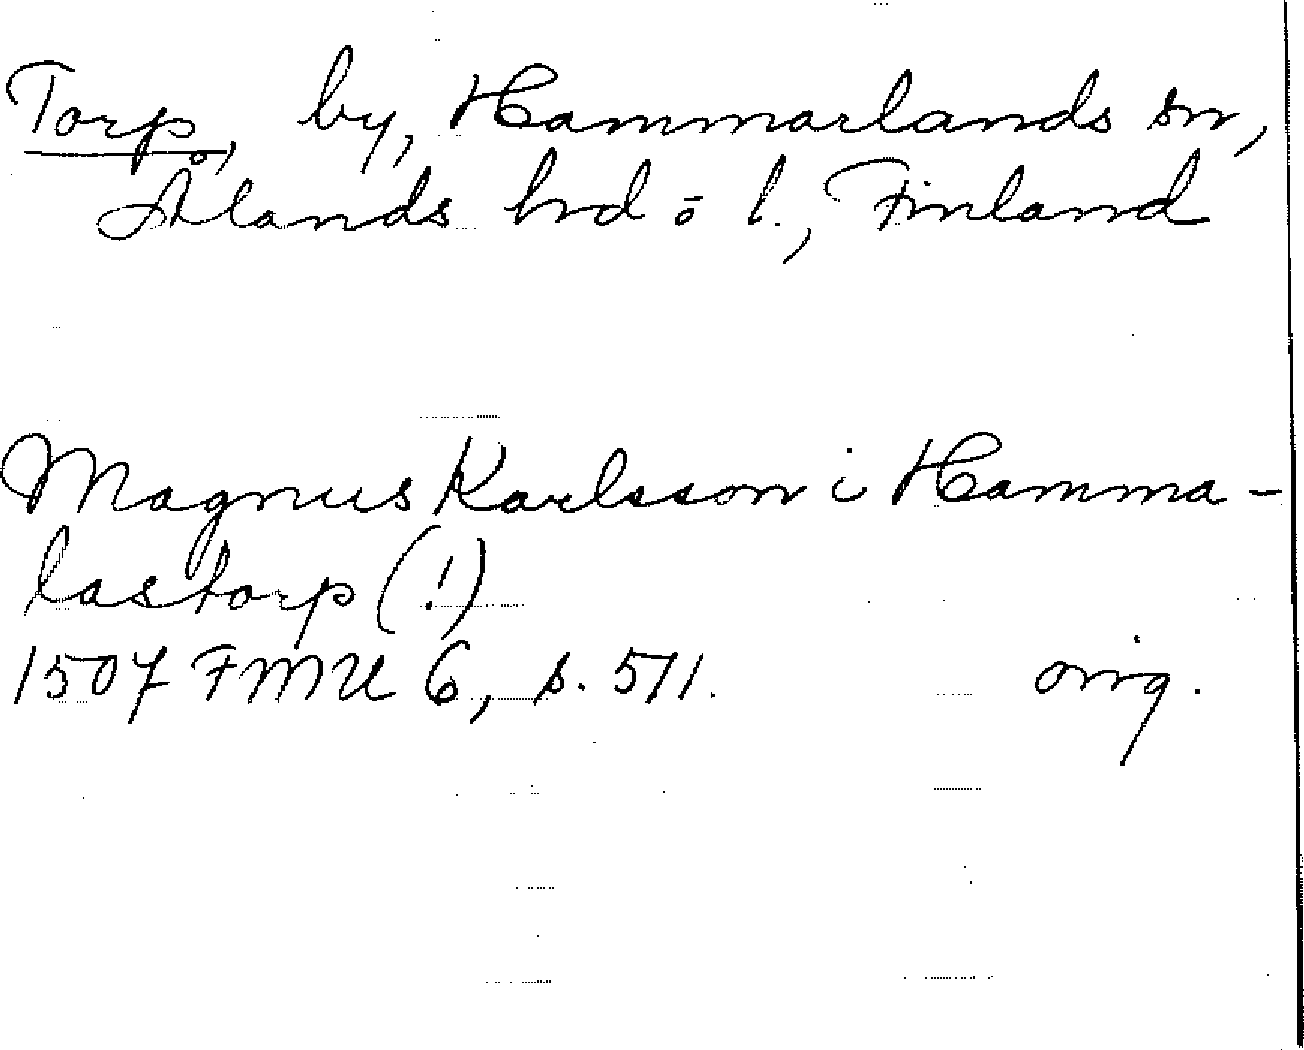 Torp, by, Hammarlands sn,
Ålands hrd o l., Finland
Magnus Karlsson i Hamma-
lastorp (!)
1507 FMU 6, s. 571. orig.